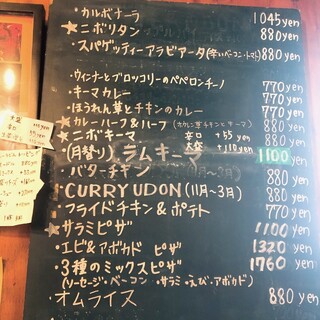 ・カルボナーラ 1045yen
★ニボリタン 880yen
・スパゲッティーアラビアータ(辛い・ベーコン・トマト) 880yen
・ウィンナーとブロッコリーのペペロンチーノ
・キーマカレー 770yen
・ほうれん草とチキンのカレー 770yen
★カレーハーフ&ハーフ 880yen
★ニボキーマ 辛口 +55yen 880yen
大辛 +110yen
(月替り) ラムキーマ 1100yen
・バターチキン 880yen
・CURRY UDON (11月〜3月) 880yen
・フライドチキン&ポテト 770yen
★サラミピザ 1100yen
・エビ&アボカド ピザ 1320yen
・3種のミックスピザ 1760yen
(ソーセージ・ベーコン・サラミ・えび・アボカド)
・オムライス 880yen